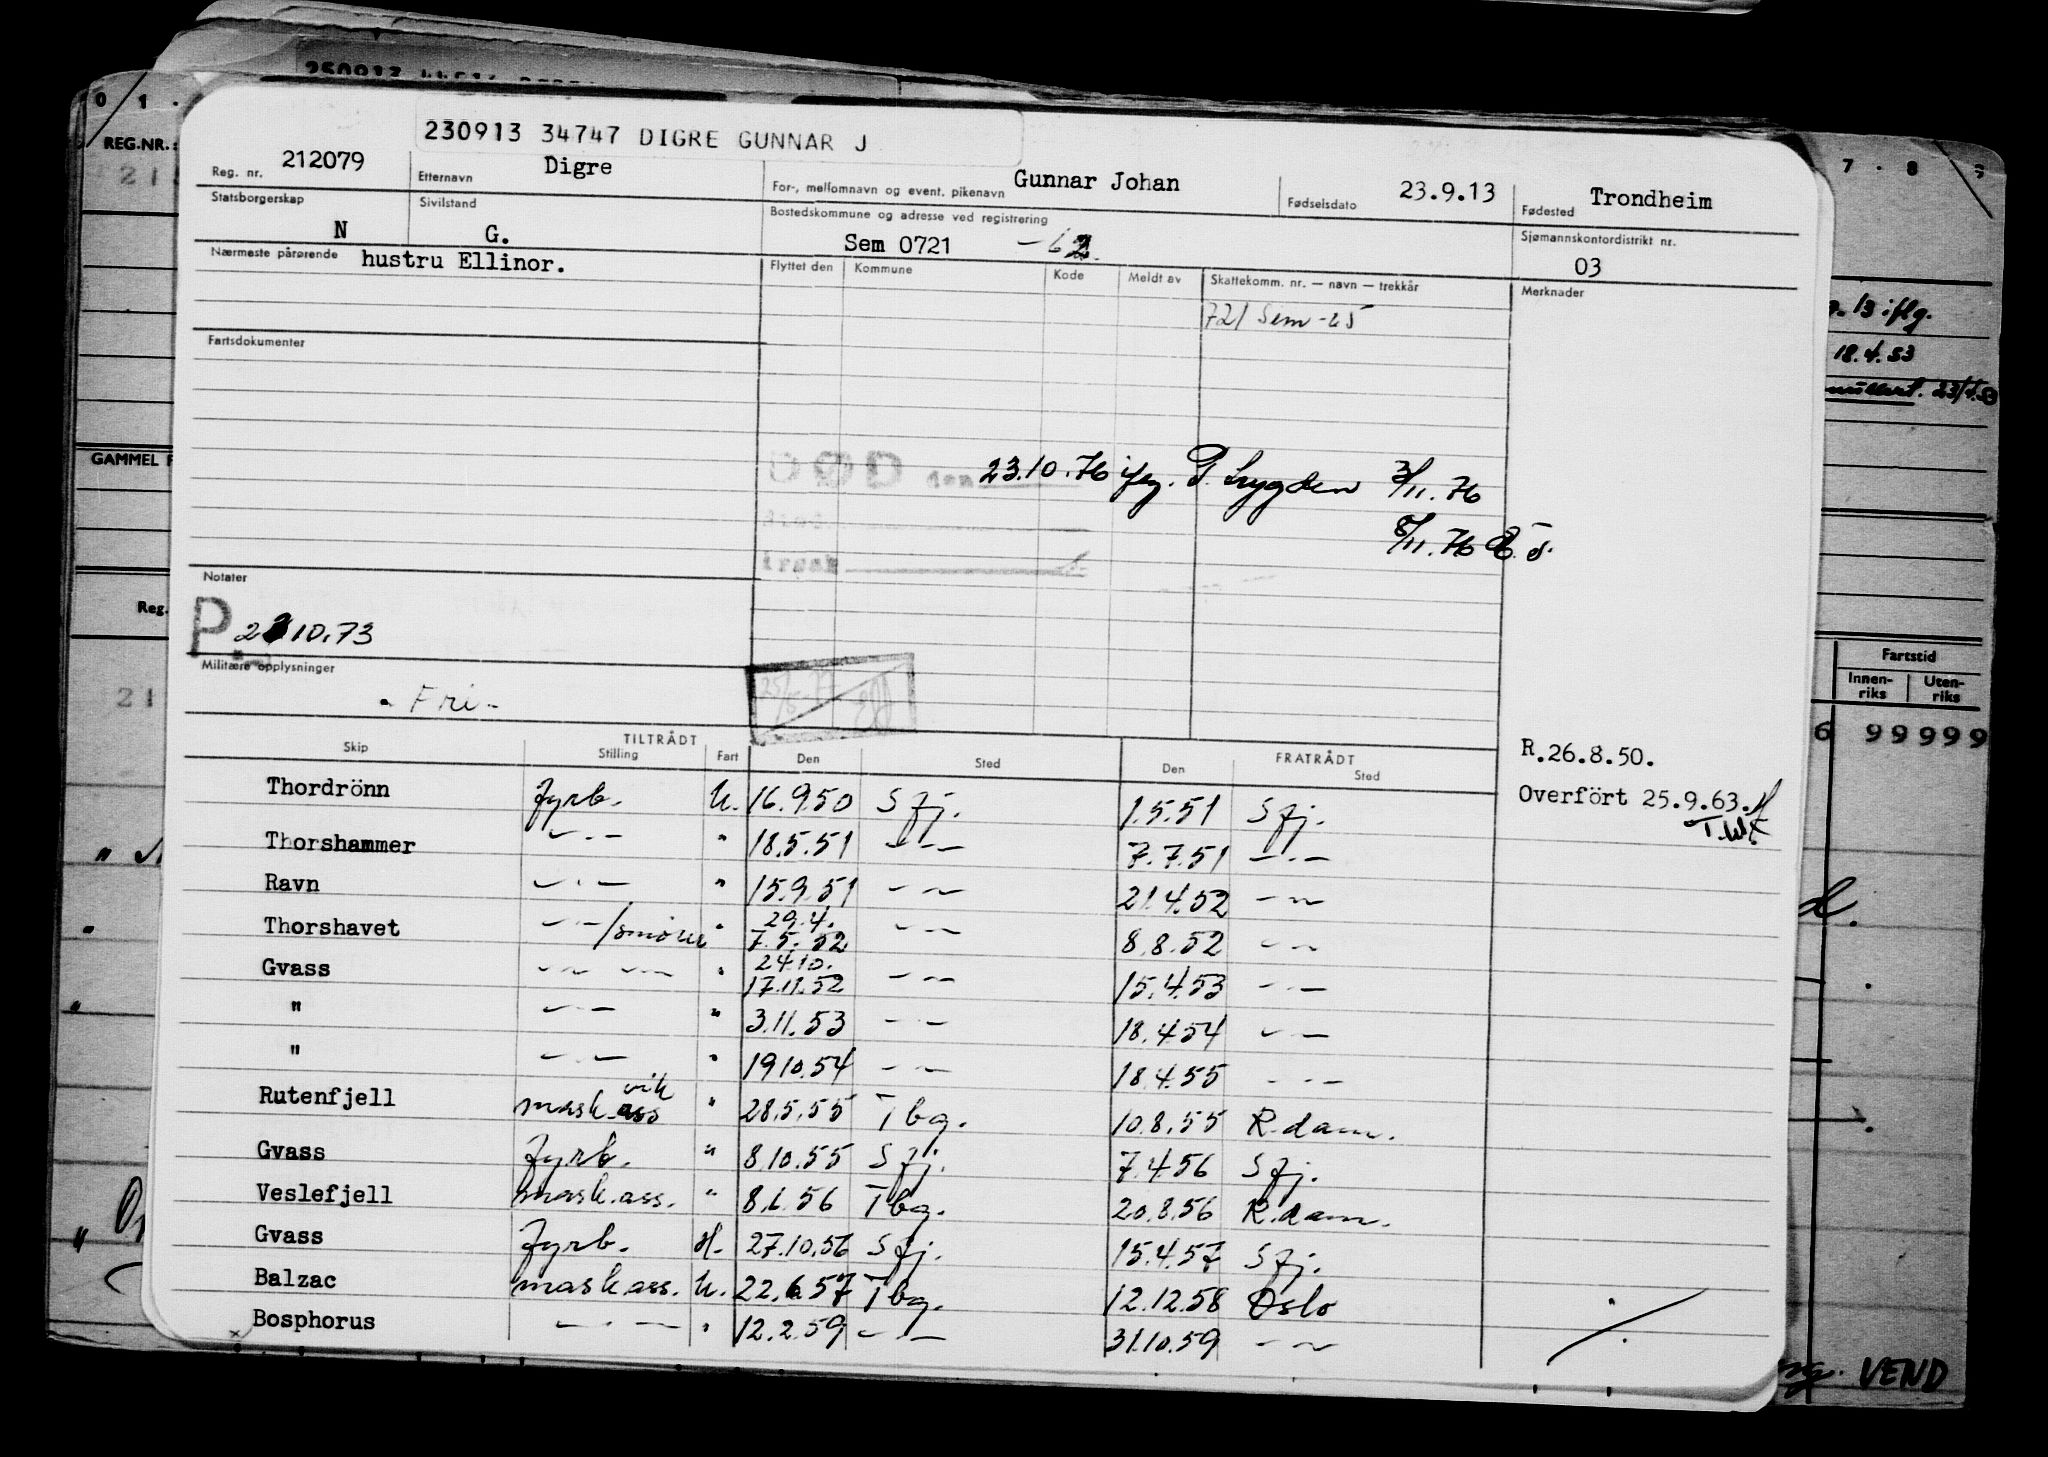 250913
0 1 .
7 . 8
REG.NR.:
230913 34747 DIGRE GUNNAR J
Reg. nr. 212079 Etternavn Digre For-, mellomnavn og event. pikenavn Gunnar Johan Fødselsdato 23.9.13 Fødested Trondheim
Statsborgerskap N Sivilstand G. Bostedskommune og adresse ved registrering Sem 0721 -62. Sjømannskontordistrikt nr. 03
Nærmeste pårørende hustru Ellinor. Flyttet den Kommune Kode Meldt av Skattekomm. nr. — navn — trekkår Merknader
721 Sem -25
Fartsdokumenter
18.4.53
GAMMEL
DØD den 23.10.76 ifg. P. Lygden 3/11.76
8/11.76
trøak
Notater
Reg.
P 10.73
Militære opplysninger
- Fri -
25/5-77
Fartstid
Innen-riks Uten-riks
6 99999
TILTRÅDT FRATRÅDT
Skip Stilling Fart Den Sted Den Sted
R.26.8.50.
Overført 25.9.63.
Thordrönn fyrb. U. 16.9.50 Sfj. 1.5.51 Sfj.
Thorshammer —"— " 18.5.51 —"— 7.7.51 —"—
Ravn —"— " 15.9.51 —"— 21.4.52 —"—
Thorshavet —"—/smører " 29.4. 7.5.52 —"— 8.8.52 —"—
Gvass —"— —"— " 24.10. 17.11.52 —"— 15.4.53 —"—
" —"— " 3.11.53 —"— 18.4.54 —"—
" —"— " 19.10.54 —"— 18.4.55 —"—
Rutenfjell mask.ass vik " 28.5.55 Tbg. 10.8.55 R.dam.
Gvass fyrb. " 8.10.55 Sfj. 7.4.56 Sfj.
Veslefjell mask.ass. " 8.6.56 Tbg. 20.8.56 R.dam.
Gvass fyrb. H. 27.10.56 Sfj. 15.4.57 Sfj.
Balzac mask.ass. U. 22.6.57 Tbg. 12.12.58 Oslo
Bosphorus —"— " 12.2.59 —"— 31.10.59 —"—
VEND